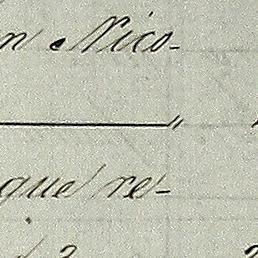 n Nico-
"
que re-